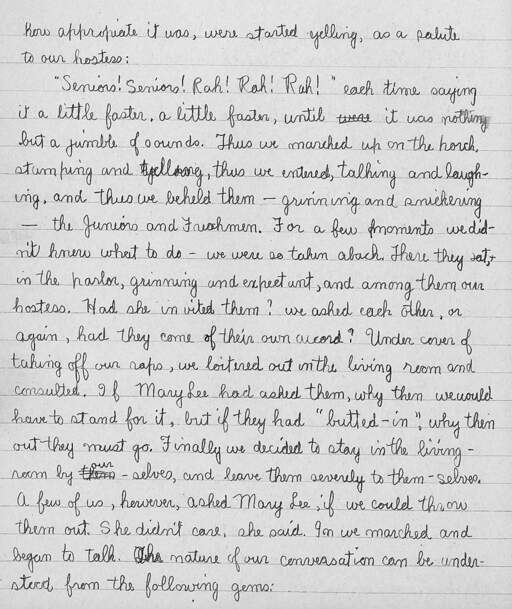 how appropiate it was, were started yelling, as a salute
to our hostess:
"Seniors! Seniors! Rah! Rah! Rah!" each time saying
it a little faster, a little faster, until were it was nothing
but a jumble of sounds. Thus we marched up on the porch,
stamping and yelling, thus we entered, talking and laugh-
ing, and thus we beheld them — grinning and snickering
— the Juniors and Freshmen. For a few moments we did-
n't know what to do - we were so taken aback. There they sat,
in the parlor, grinning and expectant, and among them our
hostess. Had she invited them? we asked each other, or
again, had they come of their own accord? Under cover of
taking off our raps, we loitered out in the living room and
consulted. If Mary Lee had asked them, why then we would
have to stand for it, but if they had "butted-in", why then
out they must go. Finally we decided to stay in the living-
room by our-selves, and leave them severely to them-selves.
A few of us, however, asked Mary Lee, if we could throw
them out. She didn't care, she said. In we marched and
began to talk. The nature of our conversation can be under-
stood from the following gems: